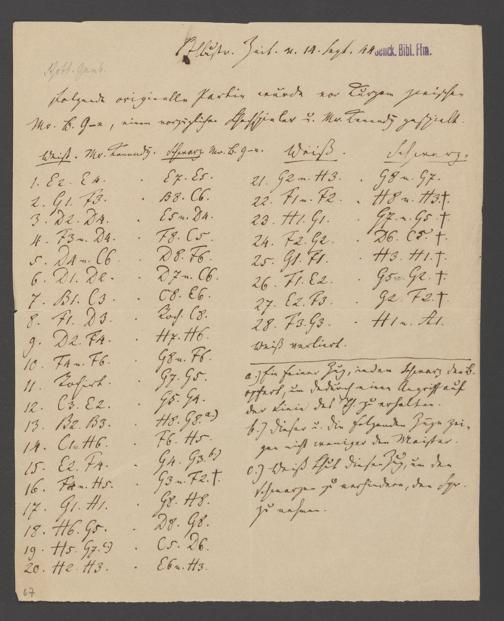 Illustr. Zeit. v. 14. Sept. 44
Senck. Bibl. Ffm.
Schott. Gamb.
Folgende originelle Partie wurde vor Kurzem zwischen
Mr. B. G–e, einem vorzüglichen Schachspieler u. Mr. Kennedy gespielt.
Weiß. Mr. Kennedy. Schwarz Mr. B. G–e.
1. E2. E4. · E7. E5.
2. G1. F3. · B8. C6.
3. D2. D4. · E5 n. D4.
4. F3 n. D4. · F8. C5.
5. D4 n. C6 · D8. F6.
6. D1. D2. · D7 n. C6.
7. B1. C3 · C8. E6.
8. F1. D3. · Roch. C8.
9. D2. F4. · H7. H6.
10. F4 n. F6. · G8 n. F6.
11. Rochirt. · G7. G5.
12. C3. E2. · G5. G4.
13. B2. B3. · H8. G8. a)
14. C1. H6. · F6. H5.
15. E2. F4. · G4. G3. b)
16. F4 n. H5. · G3 n. F2 †.
17. G1. H1. · G8. H8.
18. H6. G5. · D8. G8.
19. H5. G7. c) · C5. D6.
20. H2. H3. · E6 n. H3.
Weiß. Schwarz.
21. G2 n. H3. · G8 n. G7.
22. F1 n. F2. · H8 n. H3 †.
23. H1. G1. · G7 n. G5 †.
24. F2. G2. · D6. C5 †.
25. G1. F1. · H3. H1 †.
26. F1. E2. · G5 n. G2 †.
27. E2. F3. · G2. F2 †.
28. F3. G3. · H1 n. A1.
Weiß verliert.
a.) Ein feiner Zug, indem Schwarz den B.
opfert, um dadurch einen Angriff auf
der Linie des zu erhalten.
b.) Dieser u. die folgenden Züge zei-
gen nicht weniger den Meister.
c.) Weiß thut diesen Zug, um den
Schwarzen zu verhindern, den Spr.
zu nehmen.
67